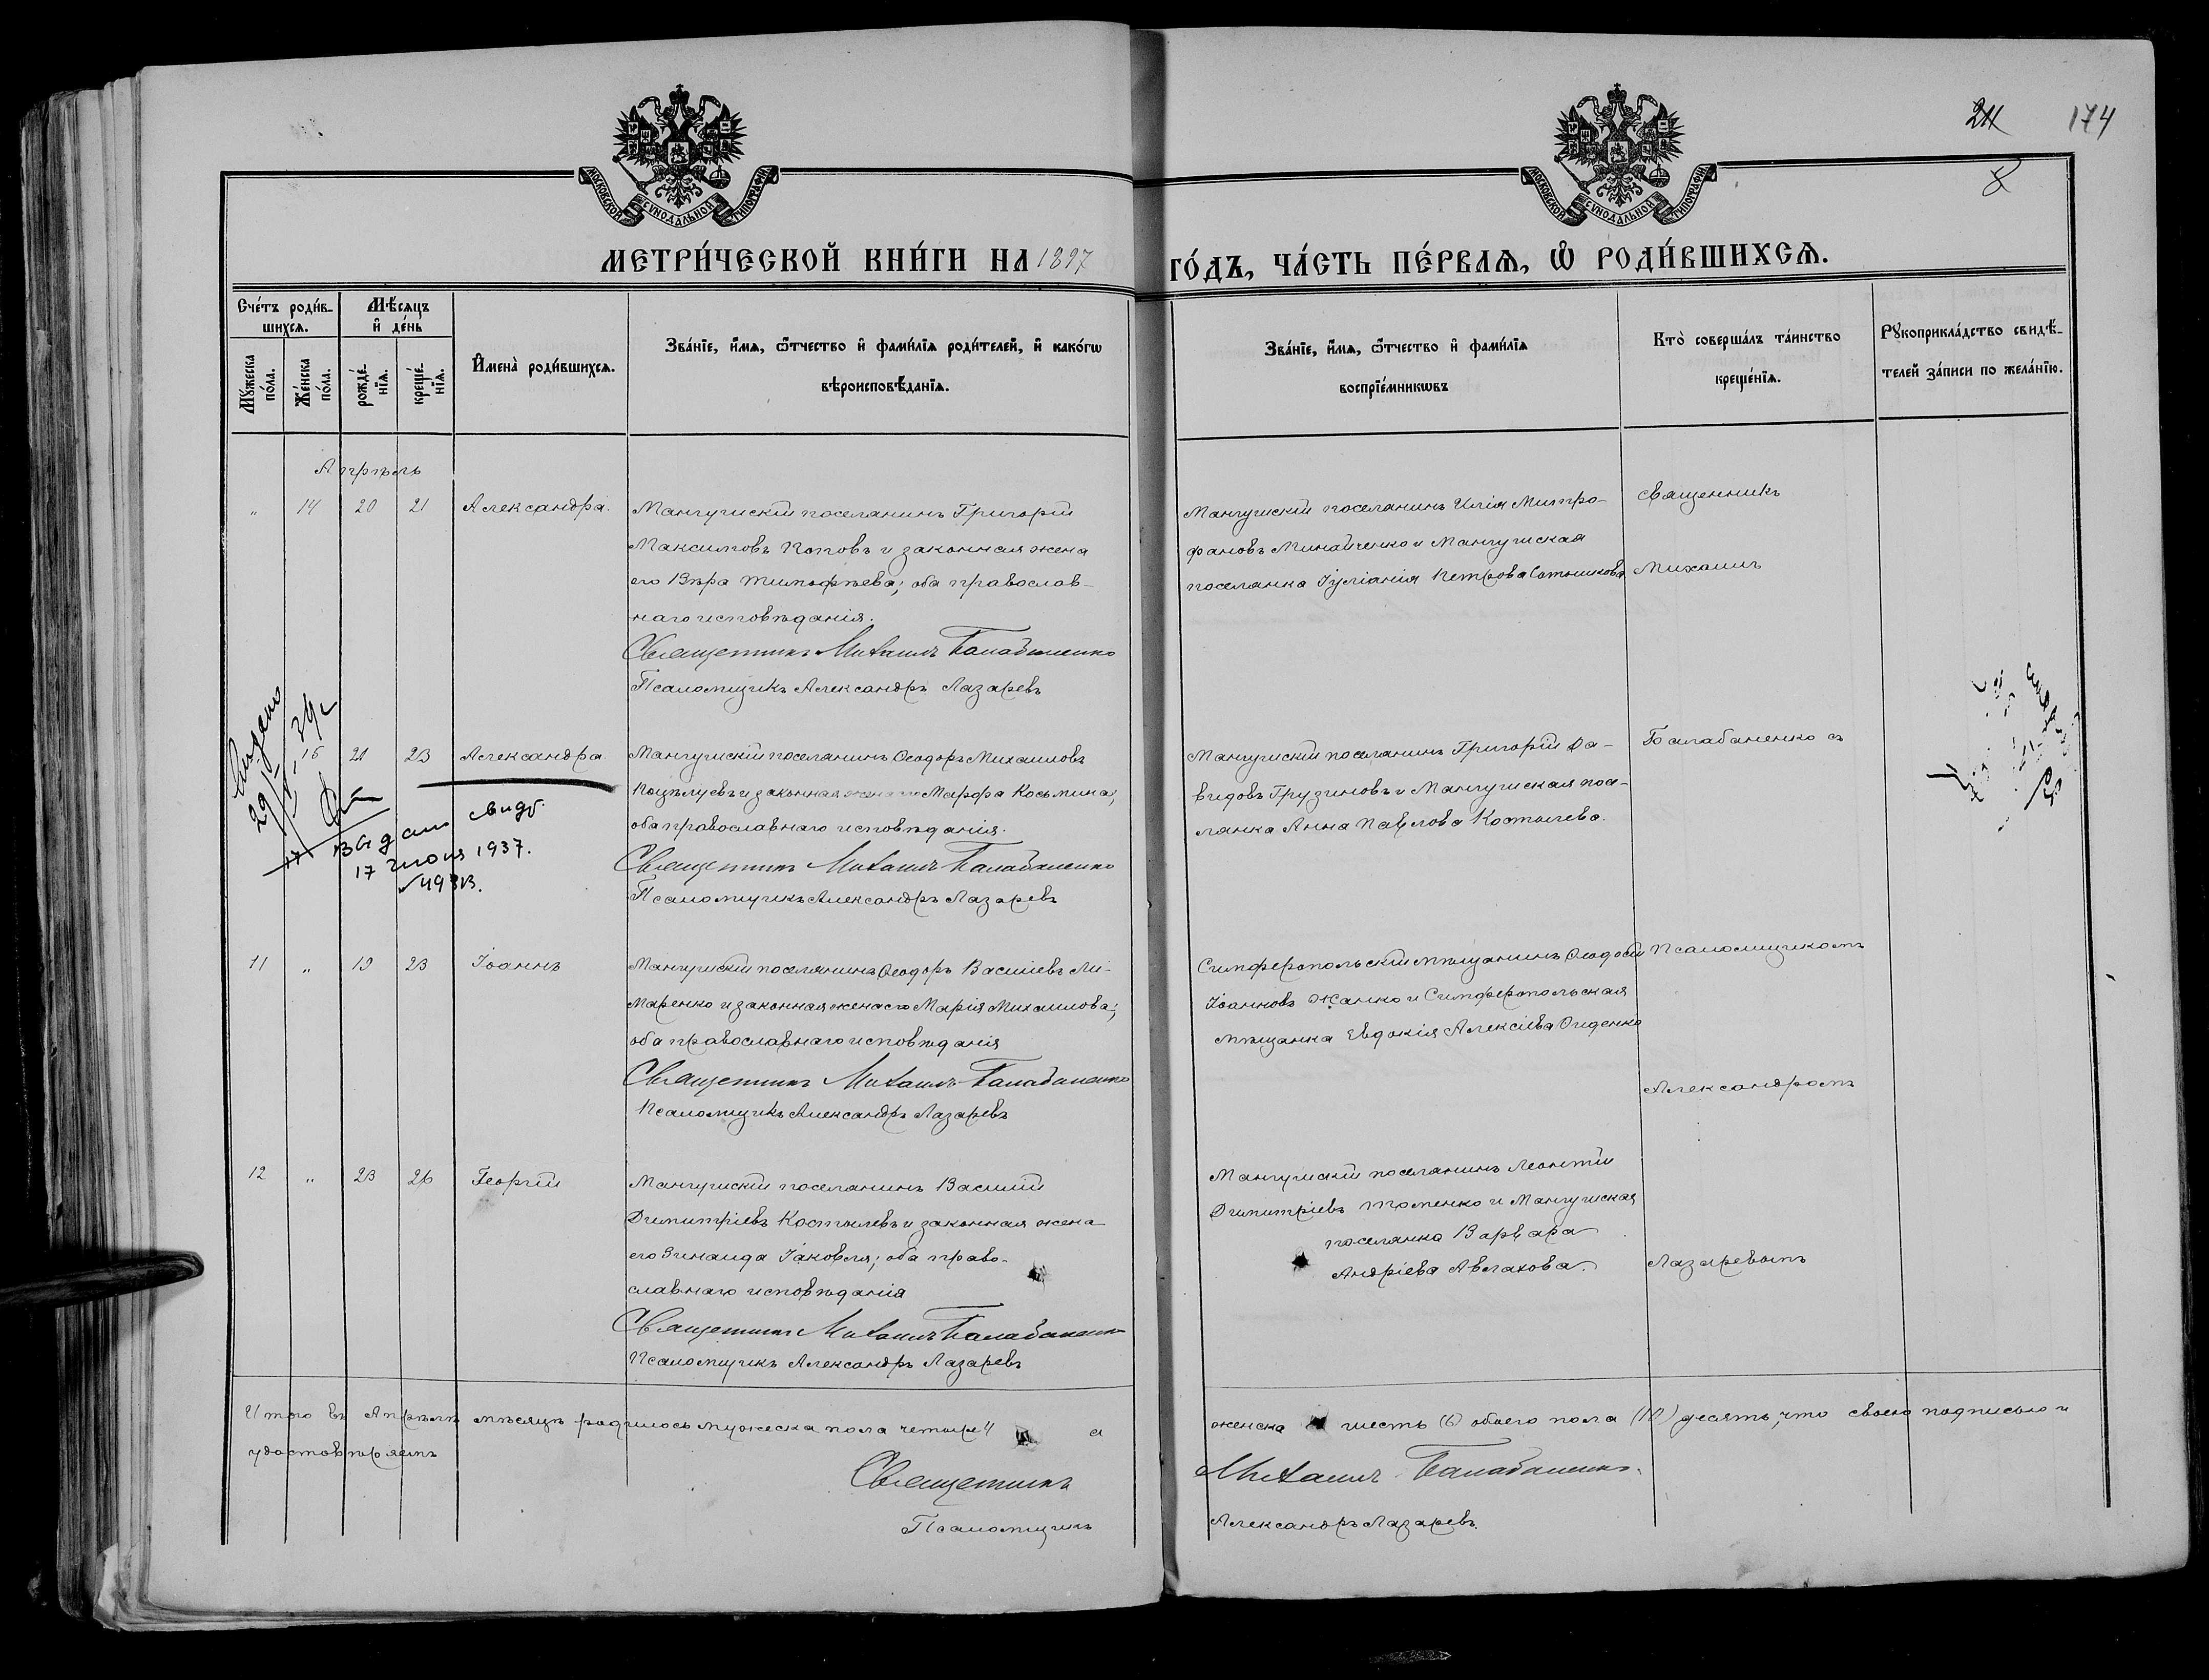 МОСКОВСКОЙ СУНОДАЛЬНОЙ ТИПОГРАФІИ
МОСКОВСКОЙ СУНОДАЛЬНОЙ ТИПОГРАФІИ
174
МЕТРИ́ЧЕСКОЙ КНИ́ГИ НА 1897 ГО́ДЪ, ЧА́СТЬ ПЕ́РВАѦ, Ѡ РОДИ́ВШИХСѦ.
Сче́тъ роди́в-
шихсѧ.
Мѣ́сѧцъ
и де́нь
Мꙋ́жеска
по́ла.
Же́нска
по́ла.
рожде́-
нїѧ.
креще́-
нїѧ.
И҆мена̀ роди́вшихсѧ.
Зва́нїе, и҆́мѧ, ѻ҆́тчество и҆ фами́лїѧ роди́телей, и҆ како́гѡ
вѣроисповѣ́данїѧ.
Зва́нїе, и҆́мѧ, ѻ҆́тчество и҆ фами́лїѧ
воспрїе́мникѡвъ
Кто̀ соверша́лъ та́инство
креще́нїѧ.
Рꙋкоприкла́дство свидѣ́-
телей за́писи по жела́нїю.
Апрѣль
" 14 20 21 Александра.
Мангушскій поселянинъ Григорій
Максимовъ Поповъ и законная жена
его Вѣра Тимофѣева; оба православ-
наго исповѣданія.
Священникъ Михаилъ Балабаненко
Псаломщикъ Александръ Лазаревъ
Мангушскій поселянинъ Илія Митро-
фановъ Минайченко и Мангушская
поселянка Іуліанія Петрова Сотникова
Священникъ
Михаилъ
Выдано
15 21 23 Александра
Мангушскій поселянинъ Ѳеодоръ Михаиловъ
Поцѣлуевъ и законная жена его Марфа Косьмина;
оба православнаго исповѣданія.
Священникъ Михаилъ Балабаненко
Псаломщикъ Александръ Лазаревъ
Мангушскій поселянинъ Григорій Да-
видовъ Грузиновъ и Мангушская посе-
лянка Анна Павлова Костылева.
Балабаненко съ
Выдано свид.
17 июня 1937.
11 " 19 23 Іоаннъ
Мангушскій поселянинъ Ѳеодоръ Василіевъ Ли-
маренко и законная жена его Марія Михаилова;
оба православнаго исповѣданія
Священникъ Михаилъ Балабаненко
Псаломщикъ Александръ Лазаревъ
Симферопольскій мѣщанинъ Ѳеодосій
Іоанновъ Жанко и Симферопольская
мѣщанка Евдокія Алексіева
Псаломщикомъ
Александромъ
12 " 23 26 Георгій
Мангушскій поселянинъ Василій
Димитріевъ Костылевъ и законная жена
его Зинаида Іаковля; оба право-
славнаго исповѣданія
Священникъ Михаилъ Балабаненко
Псаломщикъ Александръ Лазаревъ
Мангушскій поселянинъ Леонтій
Димитріевъ Томенко и Мангушская
поселянка Варвара
Андріева Авлахова.
Лазаревымъ
Итого въ Апрѣлѣ мѣсяцѣ родилось мужеска пола четыре 4 а женска шесть (6) обоего пола (10) десять, что своею подписью и
удостовѣряемъ
Священникъ Михаилъ Балабаненко.
Псаломщикъ Александръ Лазаревъ.